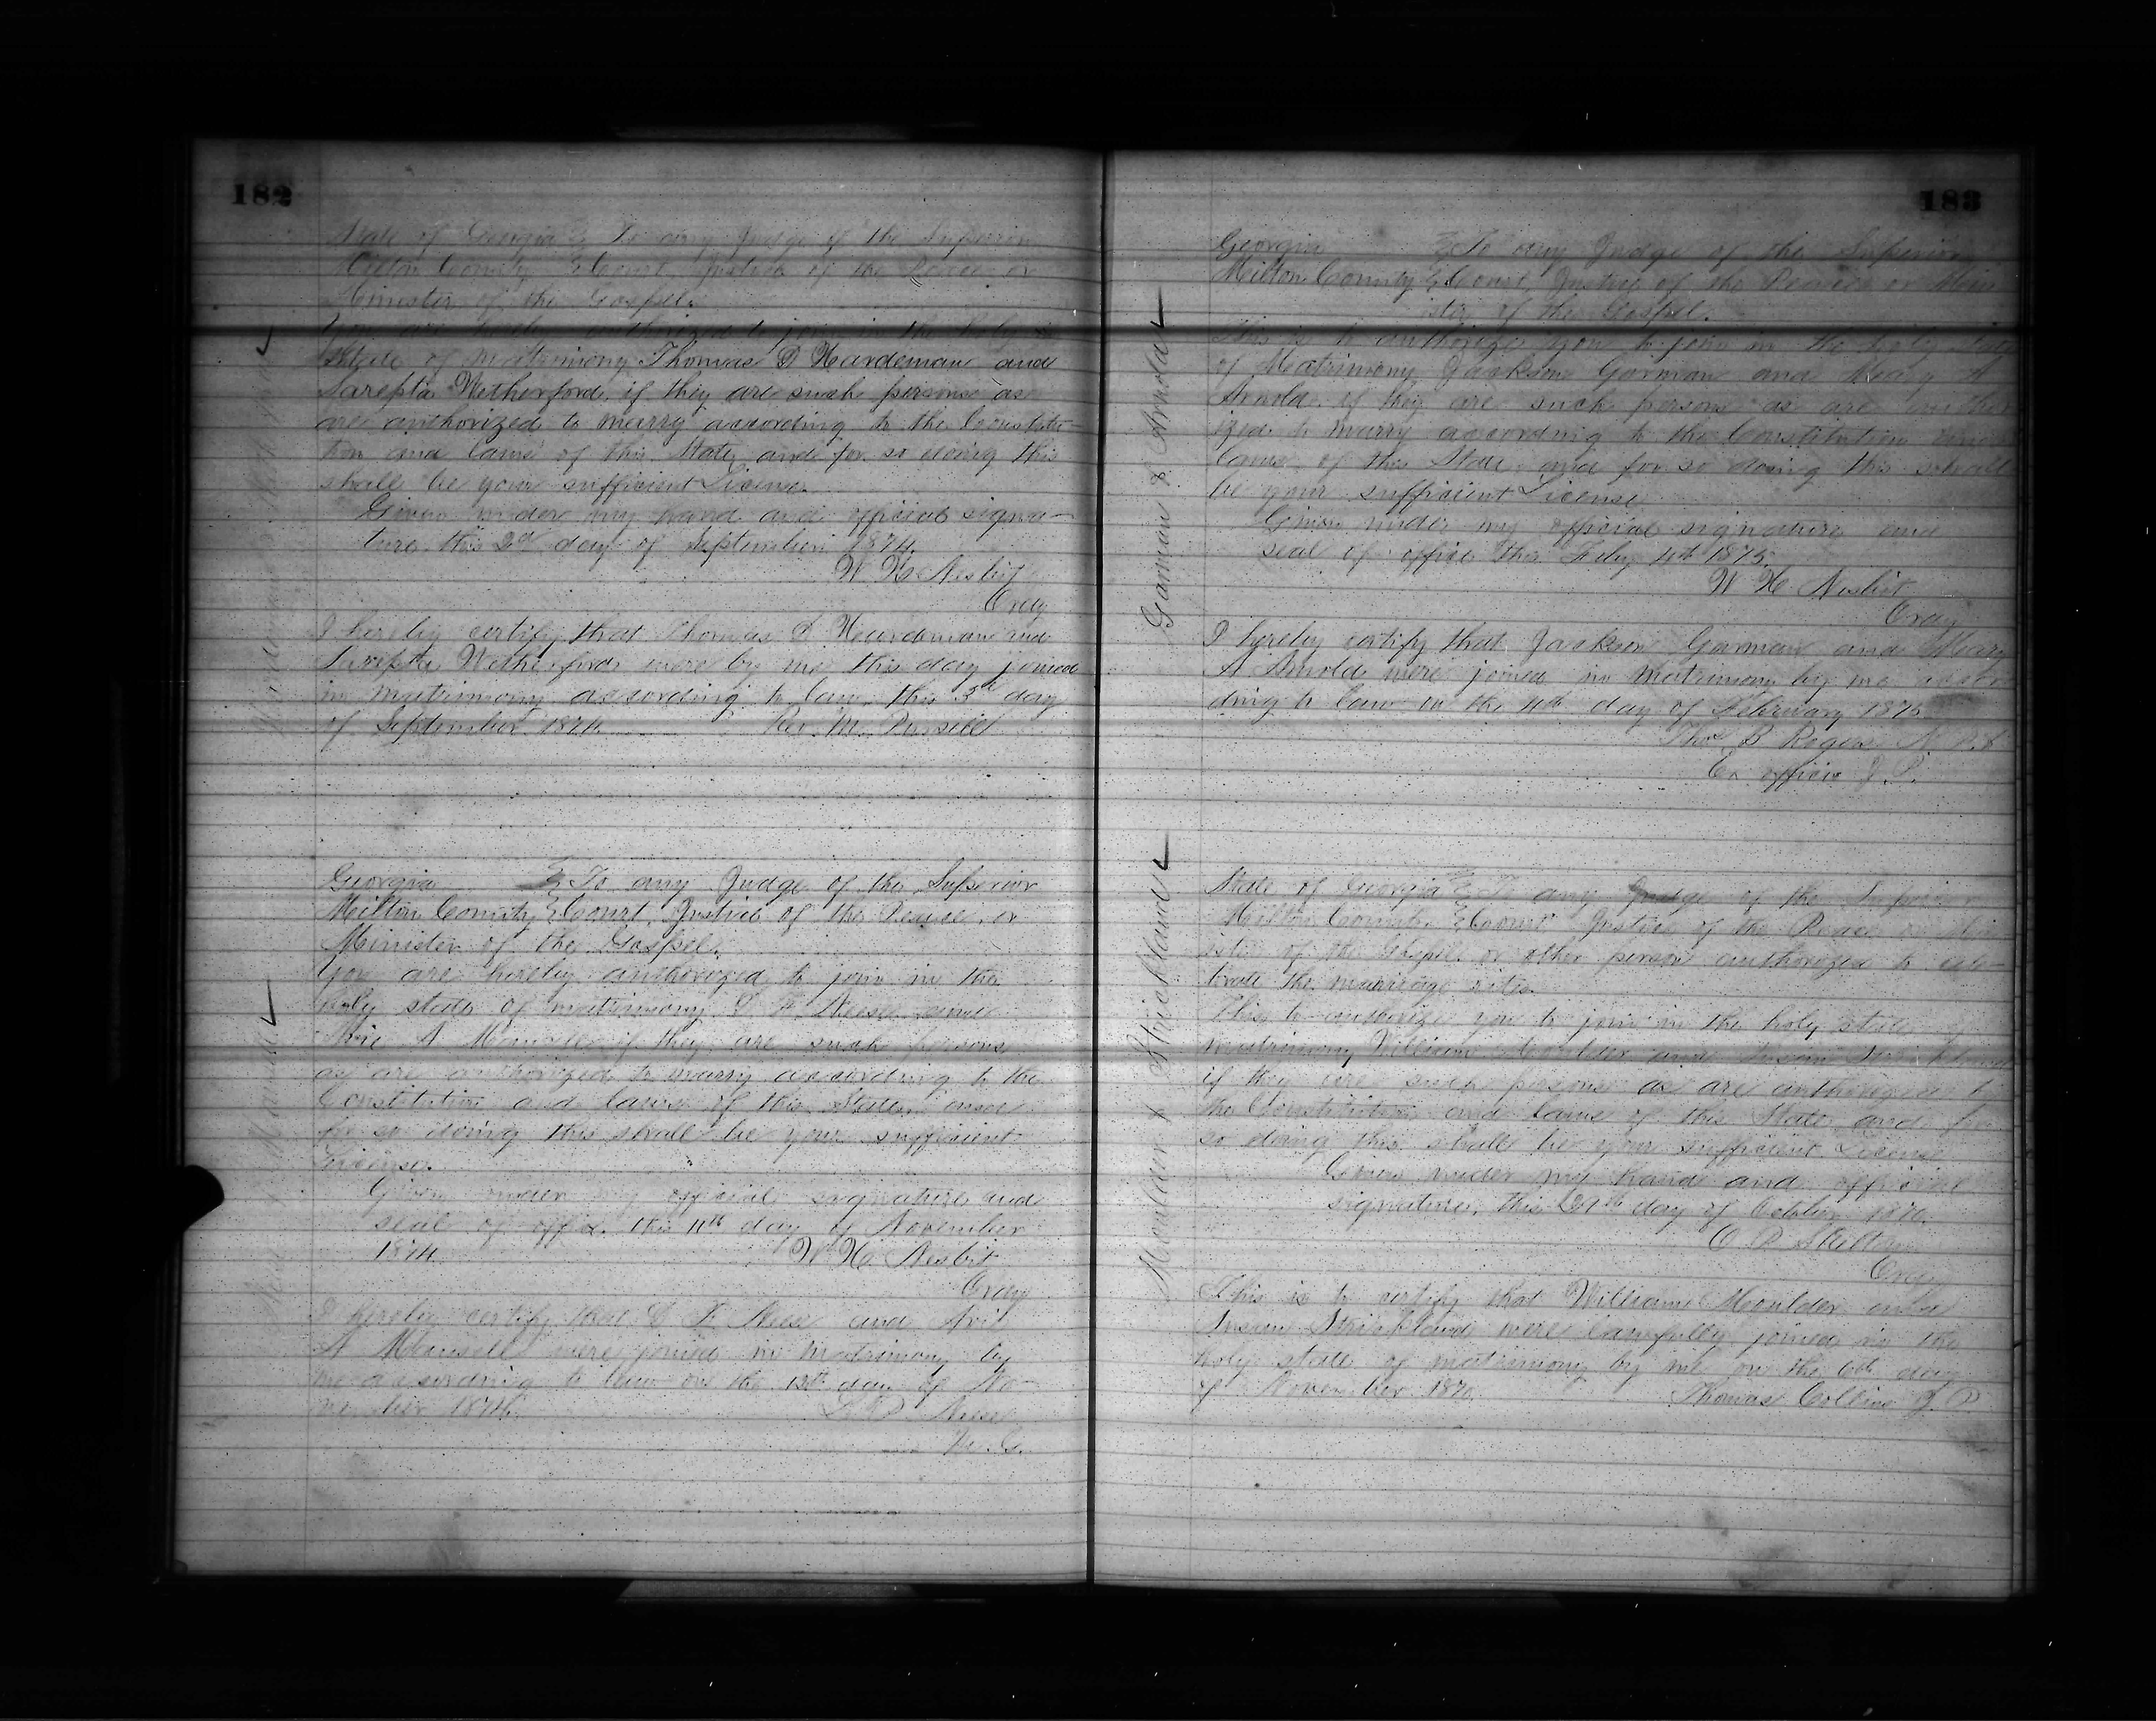 182
State of Georgia } To any Judge of the Superior
Milton County } Court, Justice of the Peace or
Minister of the Gospel.
You are hereby authorized to join in the Holy
State of Matrimony Thomas D Hardeman and
Sarepta Wetherford, if they are such persons as
are authorized to marry according to the Constitu-
tion and laws of this State, and for so doing this
shall be your sufficient License.
Given under my hand and official signa-
ture this 2d day of September 1874.
W H Nesbit
Ordy
I hereby certify that Thomas D Hardeman and
Sarepta Wetherford were by me this day joined
in matrimony according to law, this 3d day
of September 1874 Rev. M.
Georgia } To any Judge of the Superior
Milton County } Court, Justice of the Peace, or
Minister of the Gospel.
You are hereby authorized to join in the
holy state of matrimony F Reese and
A Mansell if they are such persons
as are authorized to marry according to the
Constitution and laws of this State, and
for so doing this shall be your sufficient
License.
Given under my official signature and
seal of office this 11th day of November
1874 W H Nesbit
Ordy
I hereby certify that F Reese and
A Mansell were joined in matrimony by
me according to law on the 12th day of No-
vember 1874. Reese
M. G.
183
Garman & Arnold
Georgia } To any Judge of the Superior
Milton County } Court, Justice of the Peace or Min
ister of the Gospel.
This is to authorize you to join in the holy state
of Matrimony Jackson Garman and Mary A
Arnold, if they are such persons as are author
ized to marry according to the Constitution and
laws of this State, and for so doing this shall
be your sufficient License
Given under my official signature and
seal of office this Feby 4th 1875.
W H Nesbit
Ordy
I hereby certify that Jackson Garman and Mary
A Arnold were joined in Matrimony by me accor
ding to law on the 4th day of February 1875
Thos B Rogers N. P. &
Ex officio J. P.
Moulder & Strickland
State of Georgia } To any Judge of the Superior
Milton County } Court Justice of the Peace or Min
ister of the Gospel or other person authorized to cele-
brate the marriage rites.
This to authorize you to join in the holy state of
matrimony William Moulder and Susan Strickland
if they are such persons as are authorized by
the Constitution and laws of this State, and for
so doing this shall be your sufficient License
Given under my hand and official
signature, this 29th day of October 1870.
O P Skelton
Ordy
This is to certify that William Moulder and
Susan Strickland were lawfully joined in the
holy state of matrimony by me on the 6th day
of November 1870. Thomas Collins J. P.